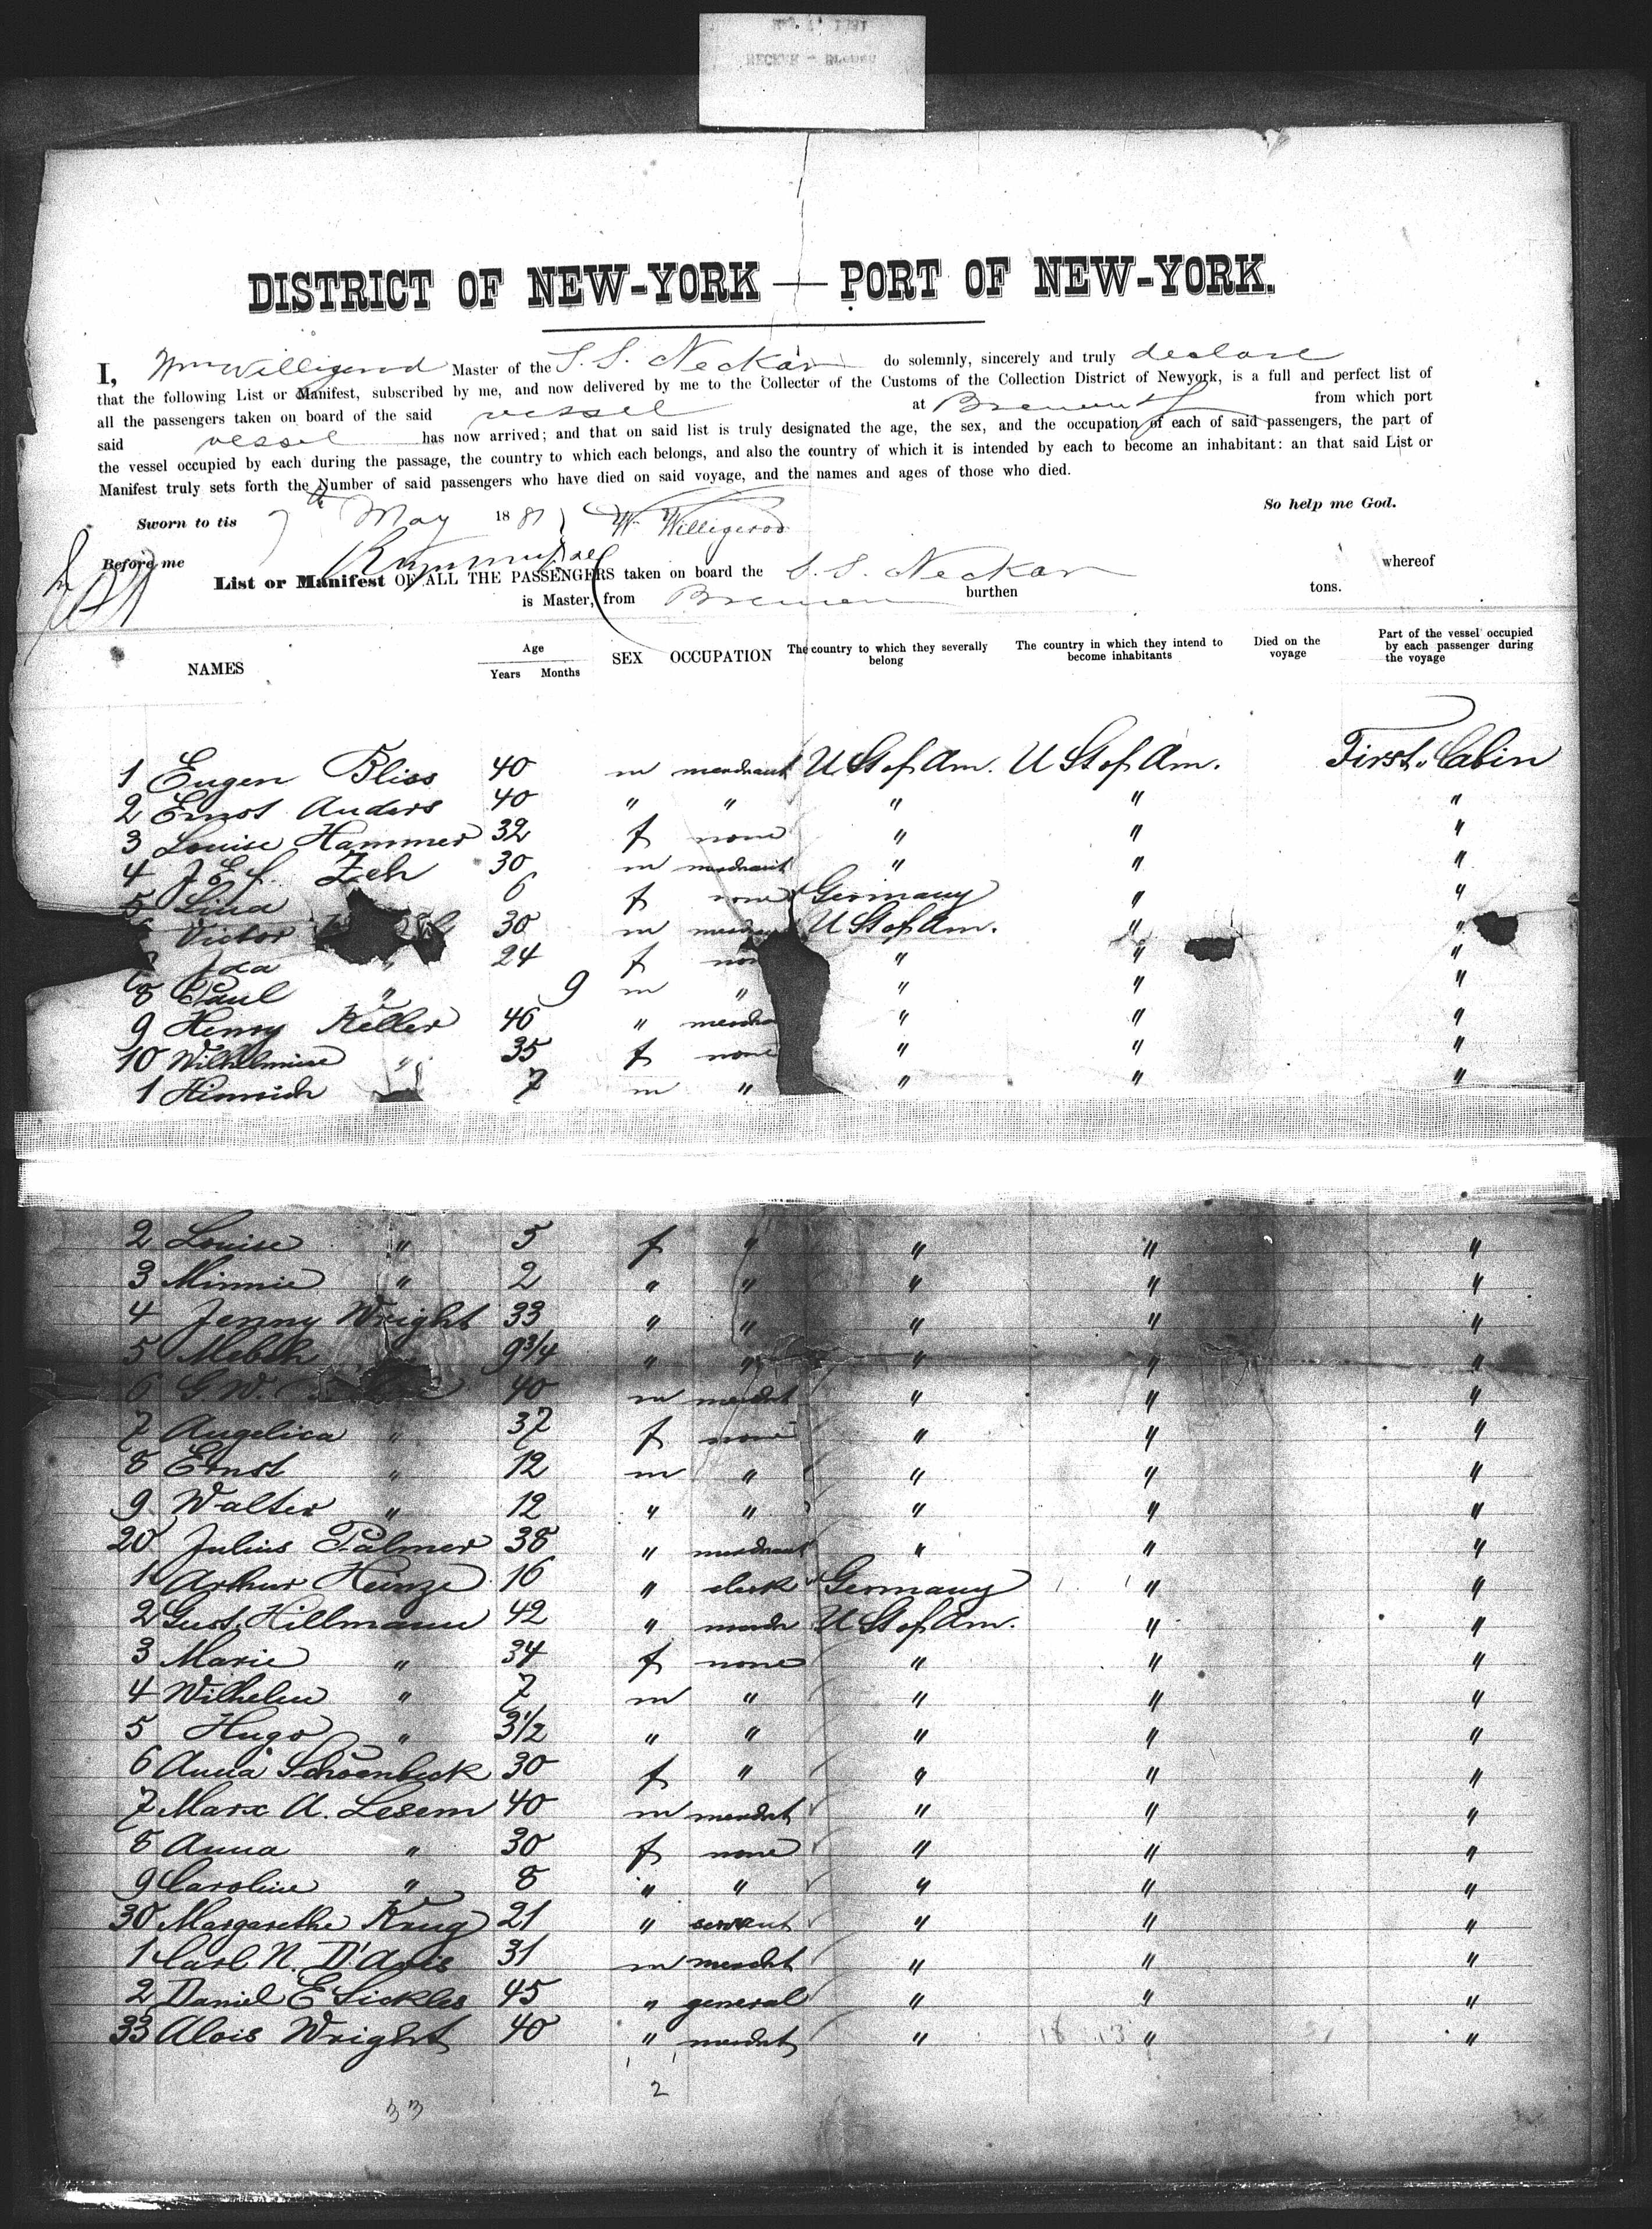 DISTRICT OF NEW-YORK — PORT OF NEW-YORK.
I, Wm Willigerod Master of the S. S. Neckar do solemnly, sincerely and truly declare
that the following List or Manifest, subscribed by me, and now delivered by me to the Collector of the Customs of the Collection District of Newyork, is a full and perfect list of
all the passengers taken on board of the said vessel at Bremen from which port
said vessel has now arrived; and that on said list is truly designated the age, the sex, and the occupation of each of said passengers, the part of
the vessel occupied by each during the passage, the country to which each belongs, and also the country of which it is intended by each to become an inhabitant: an that said List or
Manifest truly sets forth the Number of said passengers who have died on said voyage, and the names and ages of those who died.
So help me God.
Sworn to tis 7th May 1881 W. Willigerod
Before me
List or Manifest OF ALL THE PASSENGERS taken on board the S. S. Neckar whereof
is Master, from Bremen burthen tons.
NAMES Age Years Months SEX OCCUPATION The country to which they severally belong The country in which they intend to become inhabitants Died on the voyage Part of the vessel occupied by each passenger during the voyage
1 Eugen Bliss 40 m merchant U St of Am. U St of Am. First Cabin
2 Ernst Anders 40 " " " " "
3 Louise Hammer 32 f none " " "
4 J. E. f. Zeh 30 m merchant " " "
5 Lina 6 f none Germany " "
Victor 30 m U St of Am. " "
Ida " 24 f " " "
8 Paul " 9 m " " " "
9 Henry Keller 46 " " " "
10 Wilhelmine " 35 f none " " "
1 Hinrich 7 m " " " "
2 Louise " 5 f " " " "
3 Minnie " 2 " " " " "
4 Jenny Wright 33 " " " " "
5 9 3/4 " " " " "
6 G. W. 40 m mercht " " "
7 Angelica " 37 f none " " "
8 Ernst " 12 m " " " "
9 Walter " 12 " " " " "
20 Julius Palmer 38 " merchant " " "
1 Arthur Heinze 16 " clerk Germany " "
2 Gust. Hillmann 42 " merch U St of Am. " "
3 Marie " 34 f none " " "
4 Wilhelm " 7 m " " " "
5 Hugo " 3 1/2 " " " " "
6 Anna Schoenbeck 30 f " " " "
7 Marx A. Lesem 40 m mercht " " "
8 Anna " 30 f none " " "
9 Caroline " 8 " " " " "
30 Margarethe Krug 21 " servant " " "
1 Carl N. D'Avis 31 m mercht " " "
2 Daniel E Sickles 45 " general " " "
33 Alois Wright 40 " mercht " " "
2
33